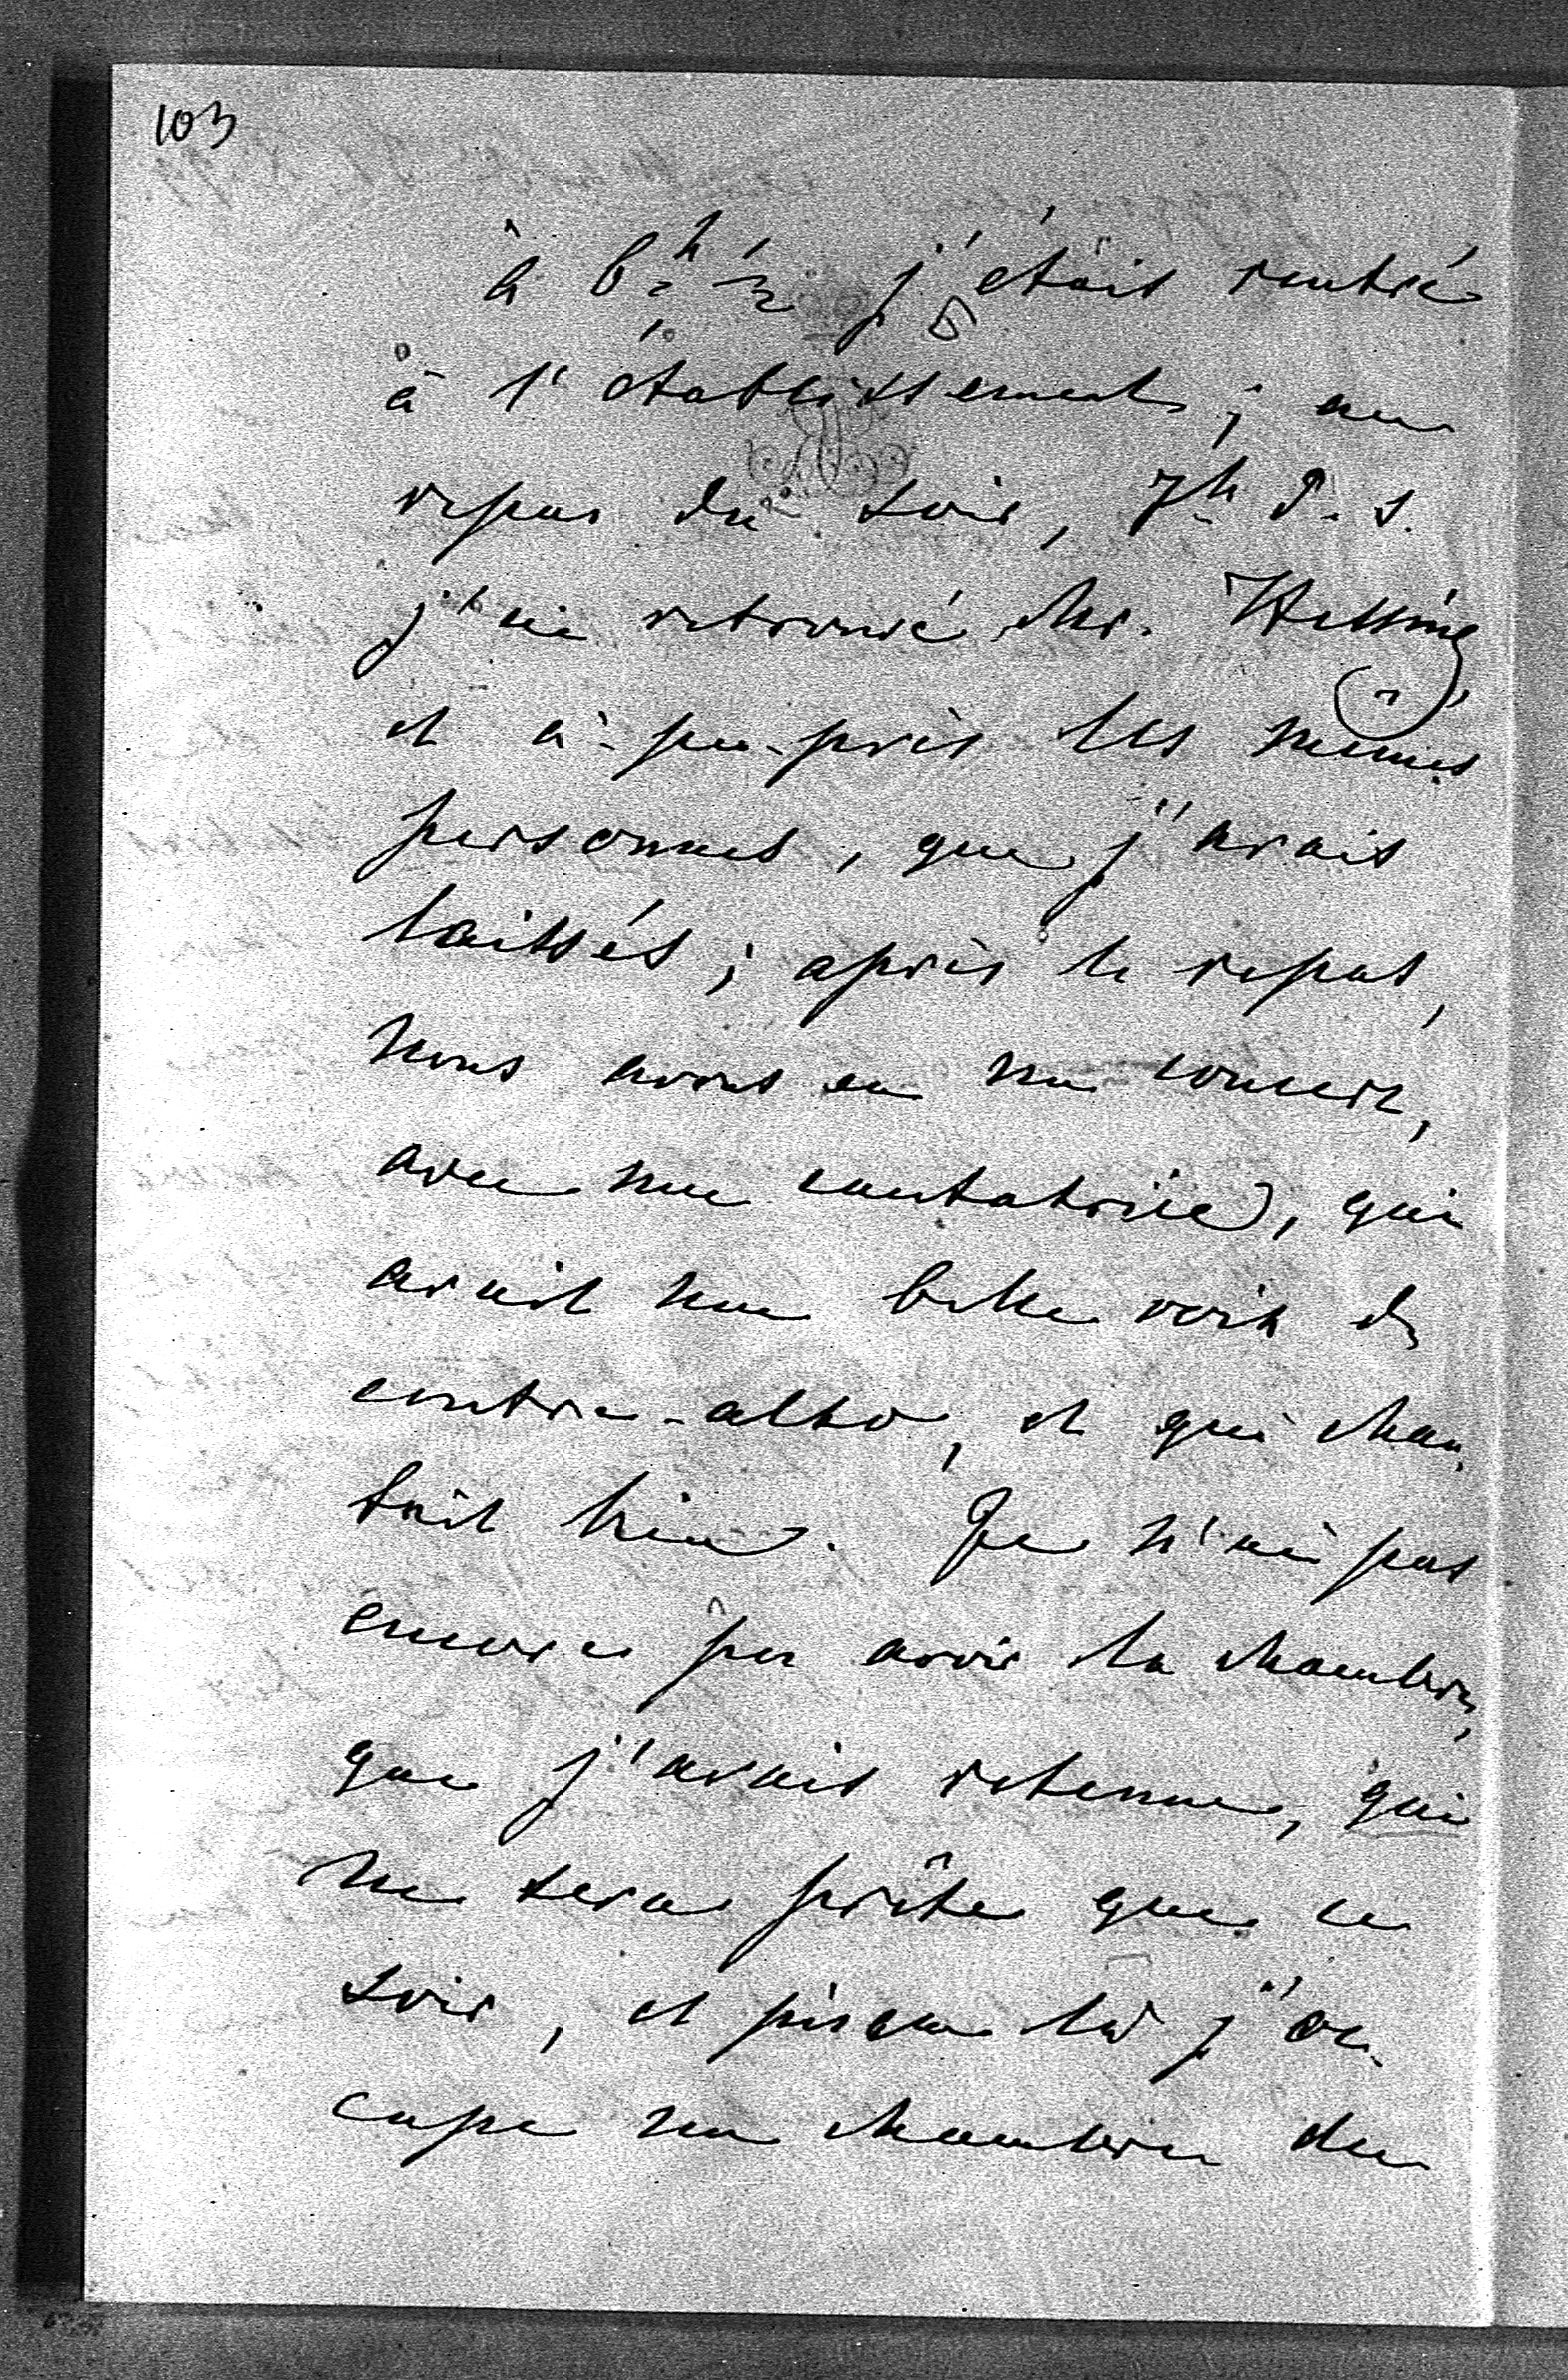 103
à 6h ½ j'étais rentré
à l'établissement ; au
repas du soir, 7h P. s.
j'ai retrouvé Mr.
et à-peu-près les mêmes
personnes, que j'avais
laissés ; après le repas,
nous avons eu un concert,
avec une cantatrice, qui
avait une belle voix de
contre-alto, et qui chan-
tait bien. Je n'ai pas
encore pu avoir la chambre,
que j'avais retenue, qui
ne sera prête que ce
soir, et jusque là j'oc-
cupe une chambre du